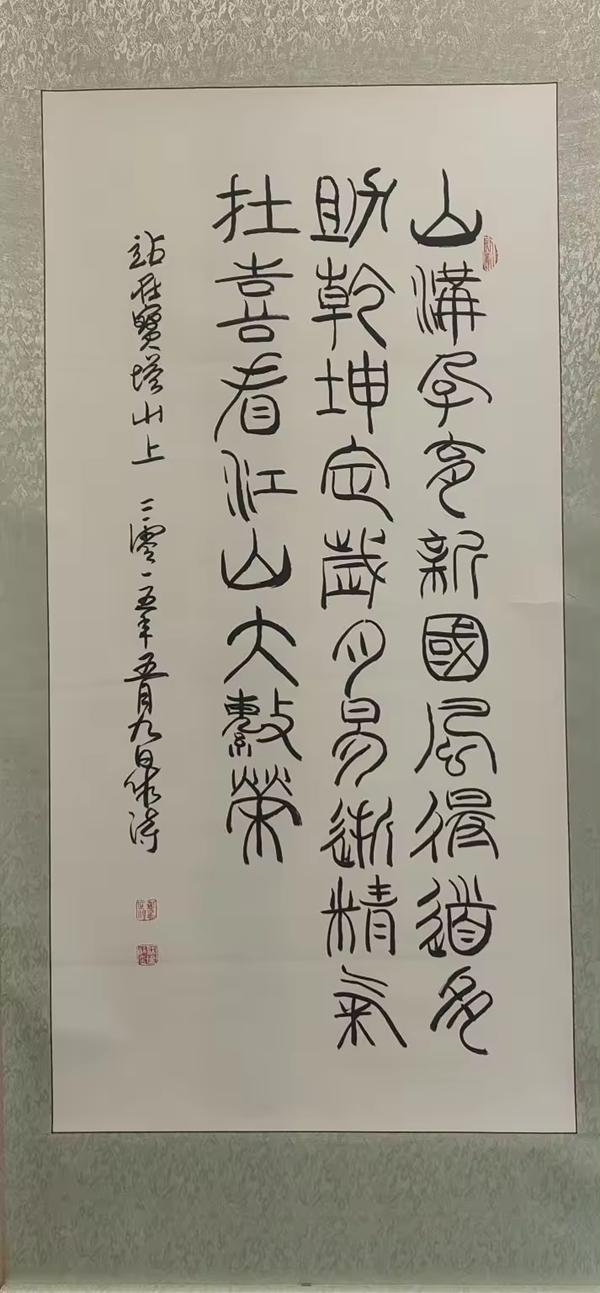 山溝孕育新國風得道多
助乾坤定歲月易逝精氣
扗喜看江山大繁榮
站在寶塔山上 二零一五年五月九日